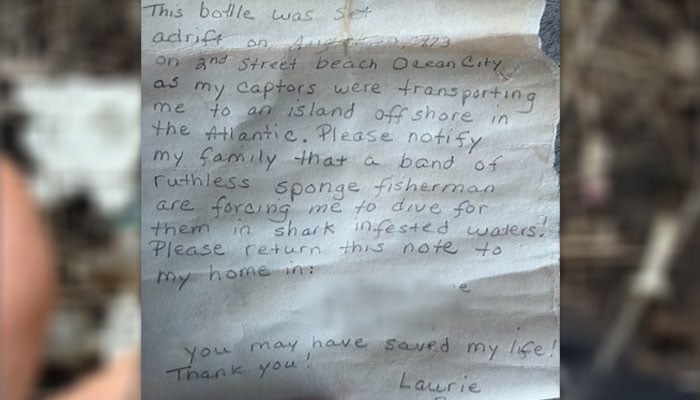 This bottle was set
adrift on August
on 2nd street beach Ocean City
as my captors were transporting
me to an island off shore in
the Atlantic. Please notify
my family that a band of
ruthless sponge fisherman
are forcing me to dive for
them in shark infested waters!
Please return this note to
my home in:
e
you may have saved my life!
Thank you!
Laurie